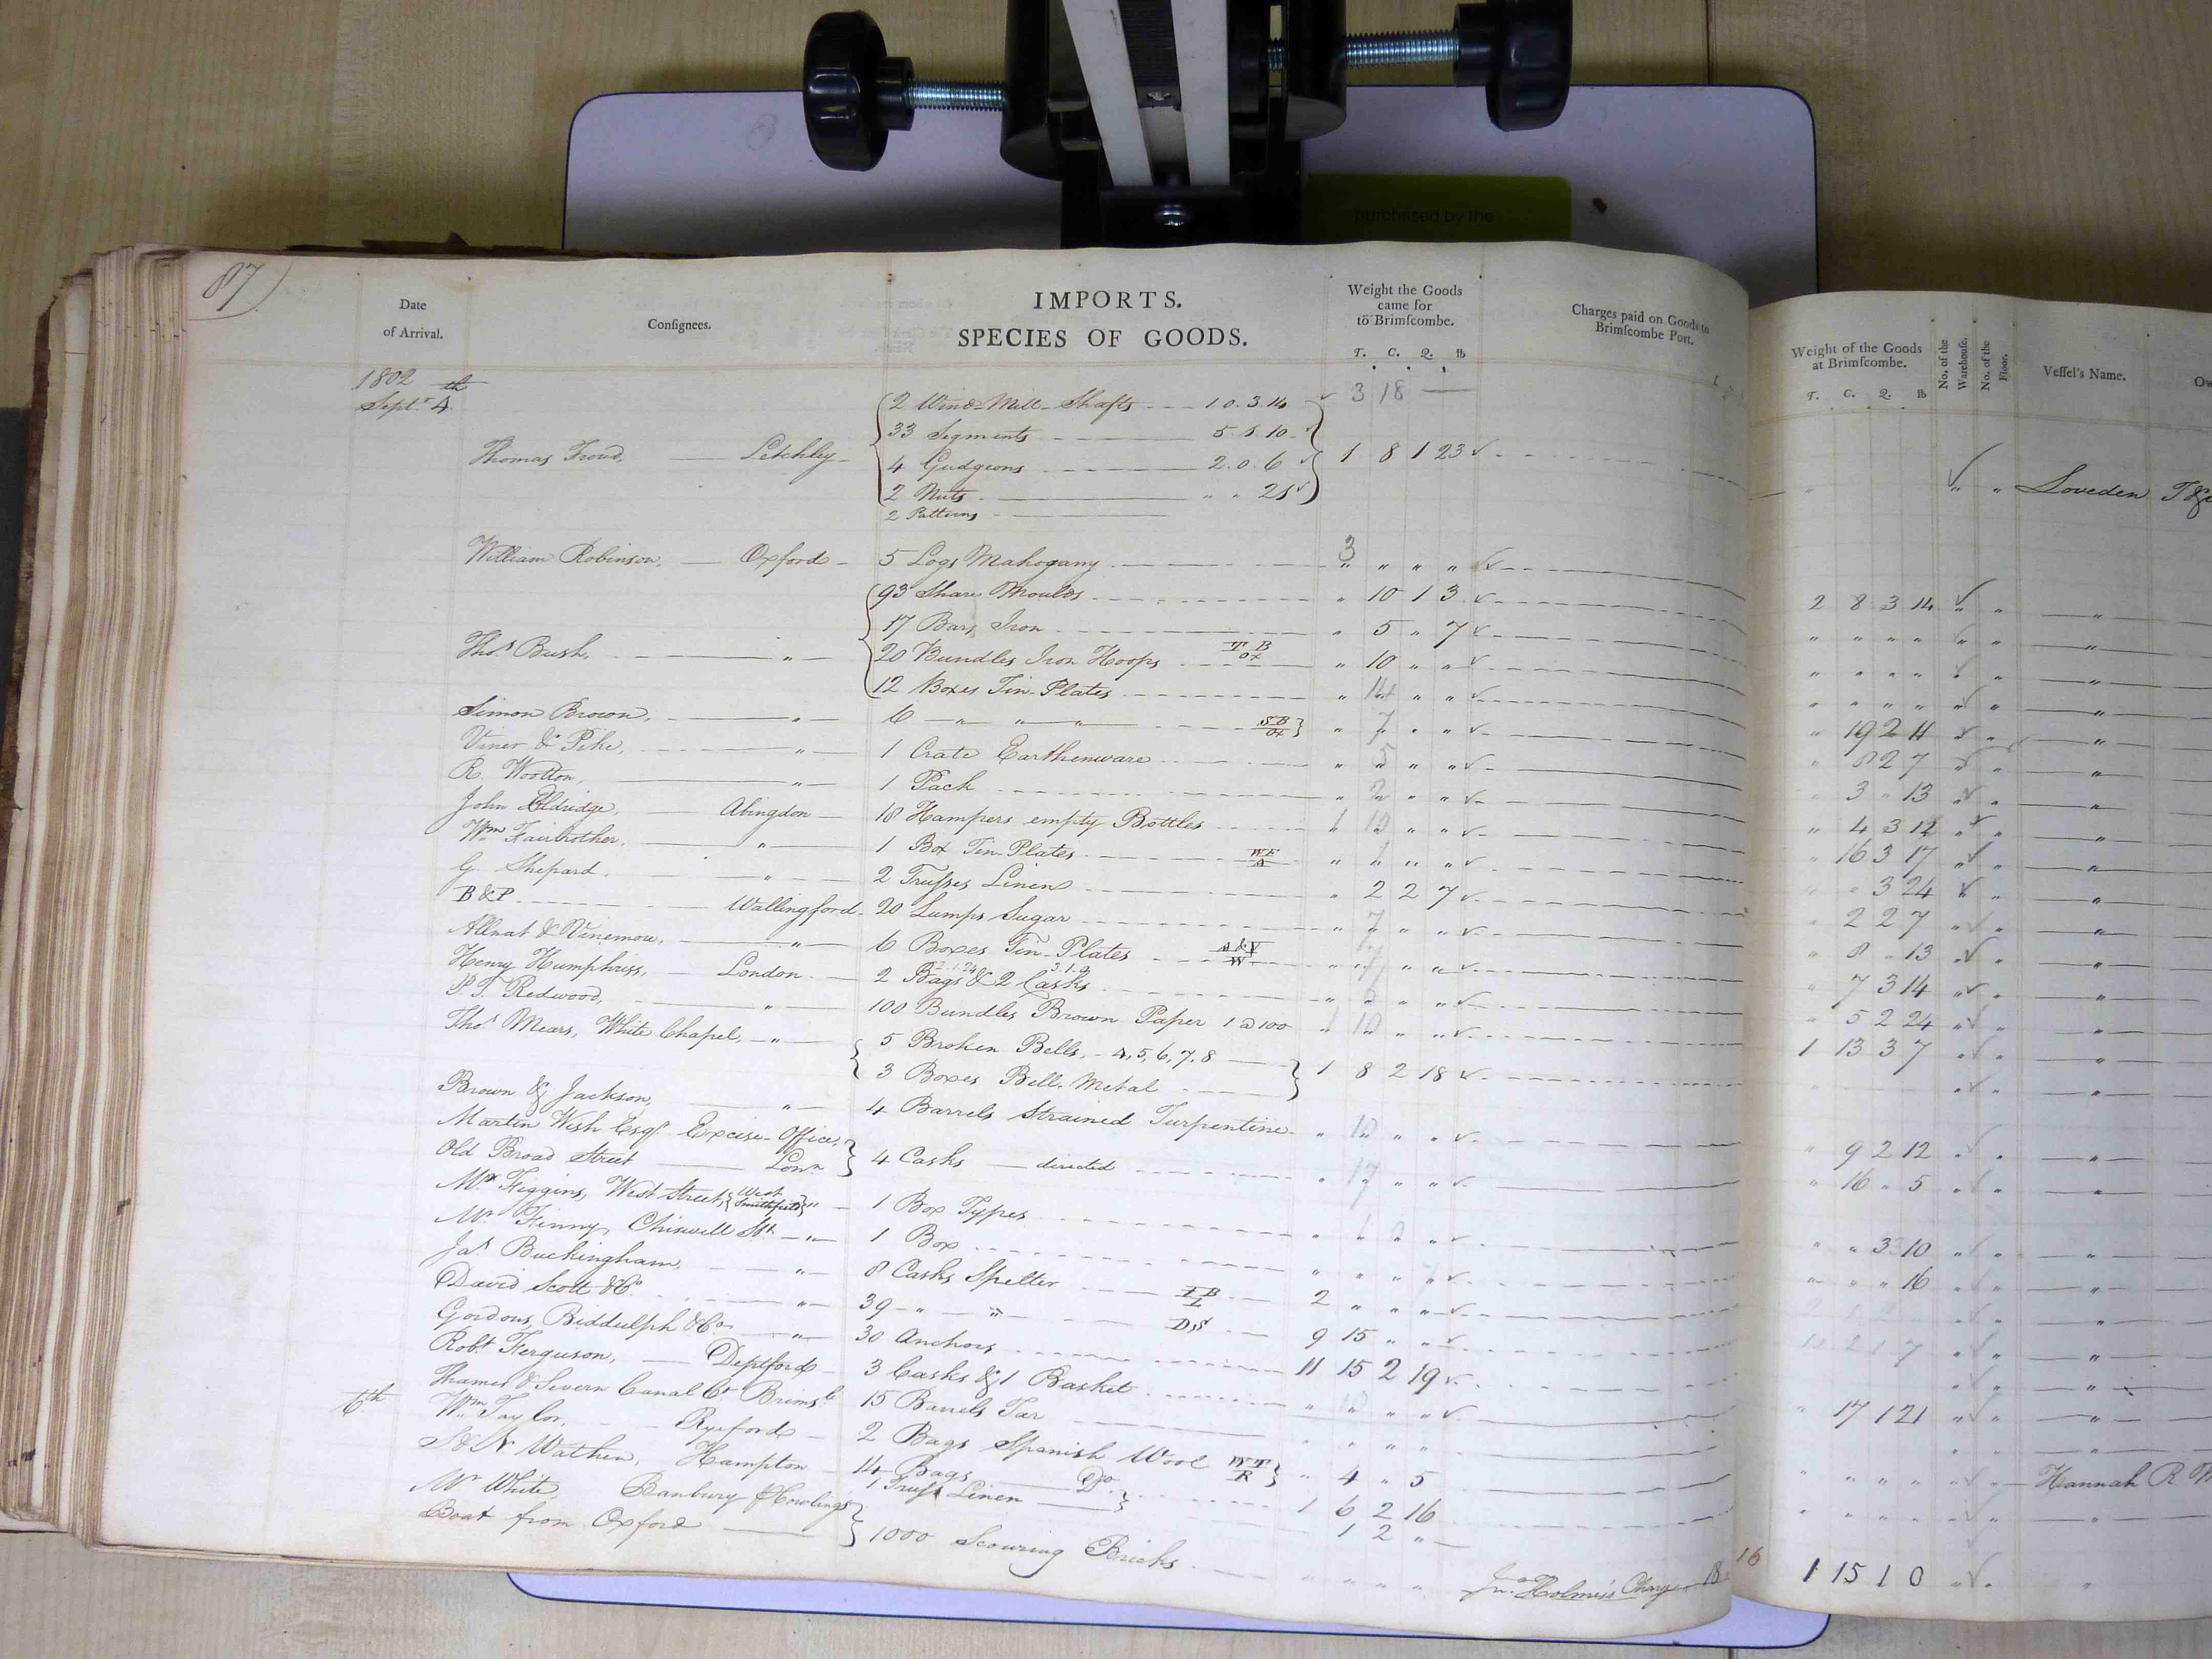 purchased by the
87)
Date of Arrival.
Conſignees.
IMPORTS.
SPECIES OF GOODS.
Weight the Goods came for to Brimſcombe.
T. C. Q. lb
Charges paid on Goods to Brimſcombe Port.
Weight of the Goods at Brimſcombe.
T. C. Q. lb
No. of the Warehouſe.
No. of the Floor.
Veſſel's Name.
Ow
1802
Septr 4th
2 Wind-Mill-Shafts 10.3.14 3 18 —
33 Segments 5.1.10
Thomas Froud, Letchley 4 Gudgeons 2.0.6 1 8 1 23 Loveden T &
2 Nuts " " 21
2 Patterns
William Robinson, Oxford 5 Logs Mahogany 3 " " " 2 8 3 14 "
93 Share Moulds " 10 1 3 " " " "
17 Bars Iron " 5 " 7 " " " "
Thos Bush, " 20 Bundles Iron Hoops T B OX " 10 " " " " " "
12 Boxes Tin-Plates " 14 " " " 19 2 11
Simon Brown, " 6 " " " S B OX " 7 " " " 8 2 7
Viner & Pike, " 1 Crate Earthenware " 5 " " " 3 " 13
R. Wootton, " 1 Pack " 2 " " " 4 3 12
John Eldridge, Abingdon 18 Hampers empty Bottles " 16 3 17
Wm Fairbrother, " 1 Box Tin-Plates W F A " 1 " " " " 3 24
G. Shepard " 2 Truſses Linen " 2 2 7 " 2 2 7
B & P Wallingford 20 Lumps Sugar " 7 " " " 8 " 13
Allnat & Vinemore, " 6 Boxes Tin-Plates A & V W " 7 " " " 7 3 14
Henry Humphriss, London 2 Bags & 2 Casks " 5 " " " 5 2 24
P. T. Redwood, " 100 Bundles Brown Paper 1 @ 100 1 13 3 7
Thos Mears, White Chapel, " 5 Broken Bells, 4, 5, 6, 7, 8
3 Boxes Bell-Metal 1 8 2 18
Brown & Jackson, " 4 Barrels Strained Turpentine " 10 " " " 9 2 12
Martin Wish Esqr Excise-Office,
Old Broad Street Lonn 4 Casks directed " 17 " " " 16 " 5
Mr Figgins, West Street, West Smithfield " 1 Box Types " " 3 10
Mr Finny, Chiswell St " 1 Box " " " 16
Jas Buckingham, " 8 Casks Spelter I B L 2 " " "
David Scott & Co " 39 " " D S 9 15 " "
Gordons, Biddulph & Co " 30 Anchors 11 15 2 19
Robt Ferguson, Deptford 3 Casks & 1 Basket " 17 1 21
Thames & Severn Canal Co Brimsb 15 Barrels Tar " " " "
6th Wm Taylor, Ryeford 2 Bags Spanish Wool W T R " 4 " 5 Hannah R
S & N Wathen, Hampton 14 Bags Do 1 6 2 16
Mr White, Banbury 1 Truſs Linen 1 2 "
Boat from Oxford 1000 Scouring Bricks Jn. Holmes's Charge 18 16 1 15 1 0